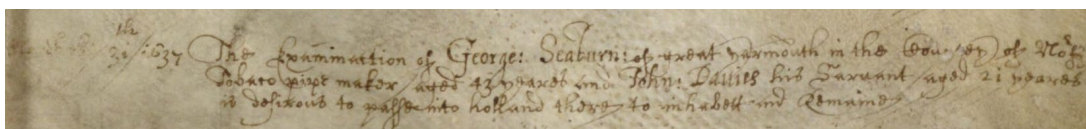 21th / 1637 The Examinattion of George: Seaburn: of great yarmouth in the Countey of Norff
Tobaco pipe maker / aged 43 yeares and John: Davies his Saruant / aged 21 yeares
is desirous to passe into holland there to inhabett and Remaine